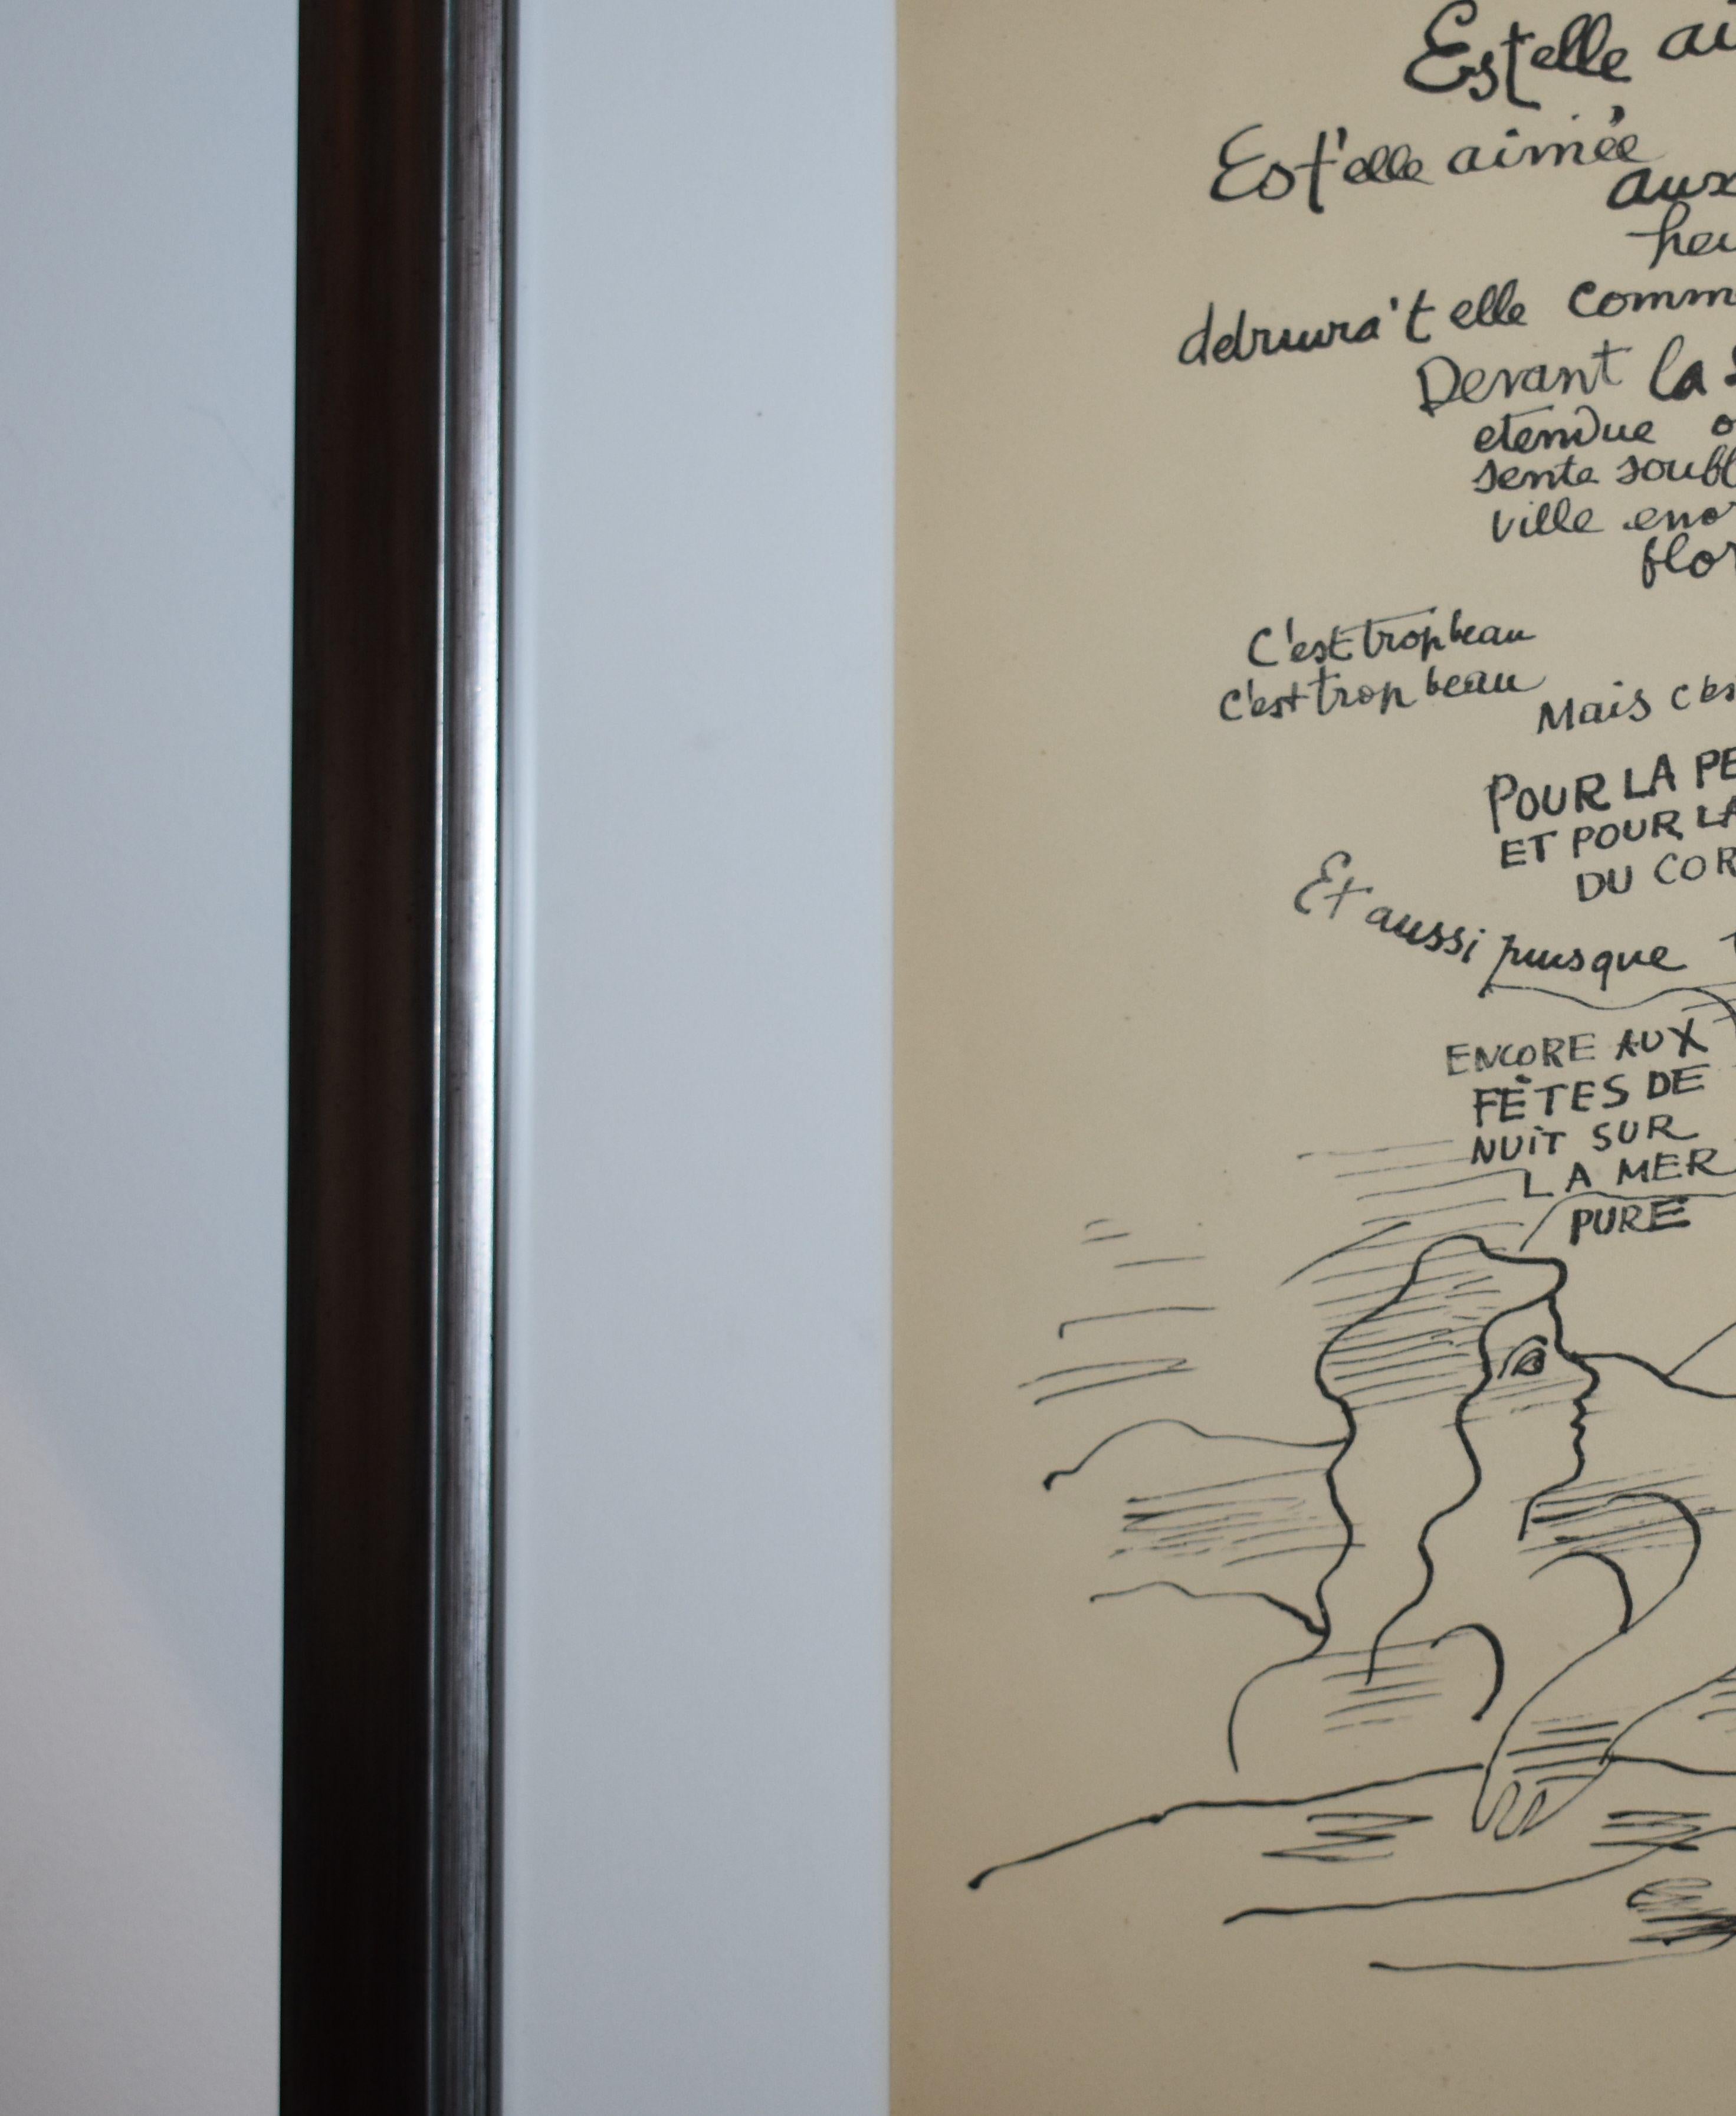 Estelle ai
Est'elle aimée
aux
heu
detruira't elle comm
Devant la s
etendue o
sente soubl
ville enor
flor
C'est trop beau
c'est trop beau
Mais c'es
POUR LA PE
ET POUR LA
DU COR
Et aussi puisque
ENCORE AUX
FÊTES DE
NUIT SUR
LA MER
PURE